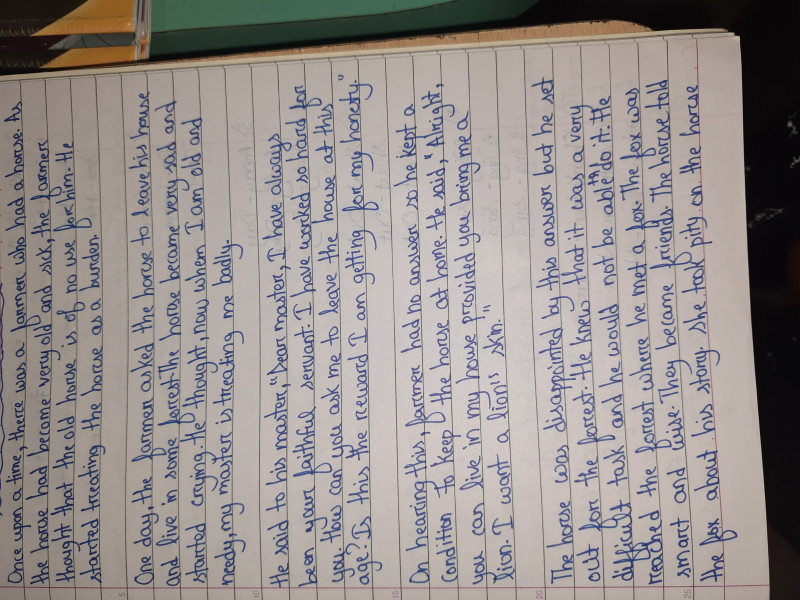 Once upon a time, there was a farmer who had a horse. As
the horse had become very old and sick, the farmer
thought that the old horse is of no use for him. He
started treating the horse as a burden.
One day, the farmer asked the horse to leave his house
and live in some forrest. The horse became very sad and
started crying. He thought, now when I am old and
needy, my master is treating me badly.
He said to his master, "Dear master, I have always
been your faithful servant. I have worked so hard for
you. How can you ask me to leave the house at this
age? Is this the reward I am getting for my honesty."
On hearing this, farmer had no answer so he kept a
condition to keep the horse at home. He said, "Alright,
you can live in my house provided you bring me a
lion. I want a lion's skin."
The horse was disappointed by this answer but he set
out for the forrest. He knew that it was a very
difficult task and he would not be able to do it. He
reached the forrest where he met a fox. The fox was
smart and wise. They became friends. The horse told
the fox about his story. She took pity on the horse
5
10
15
20
25